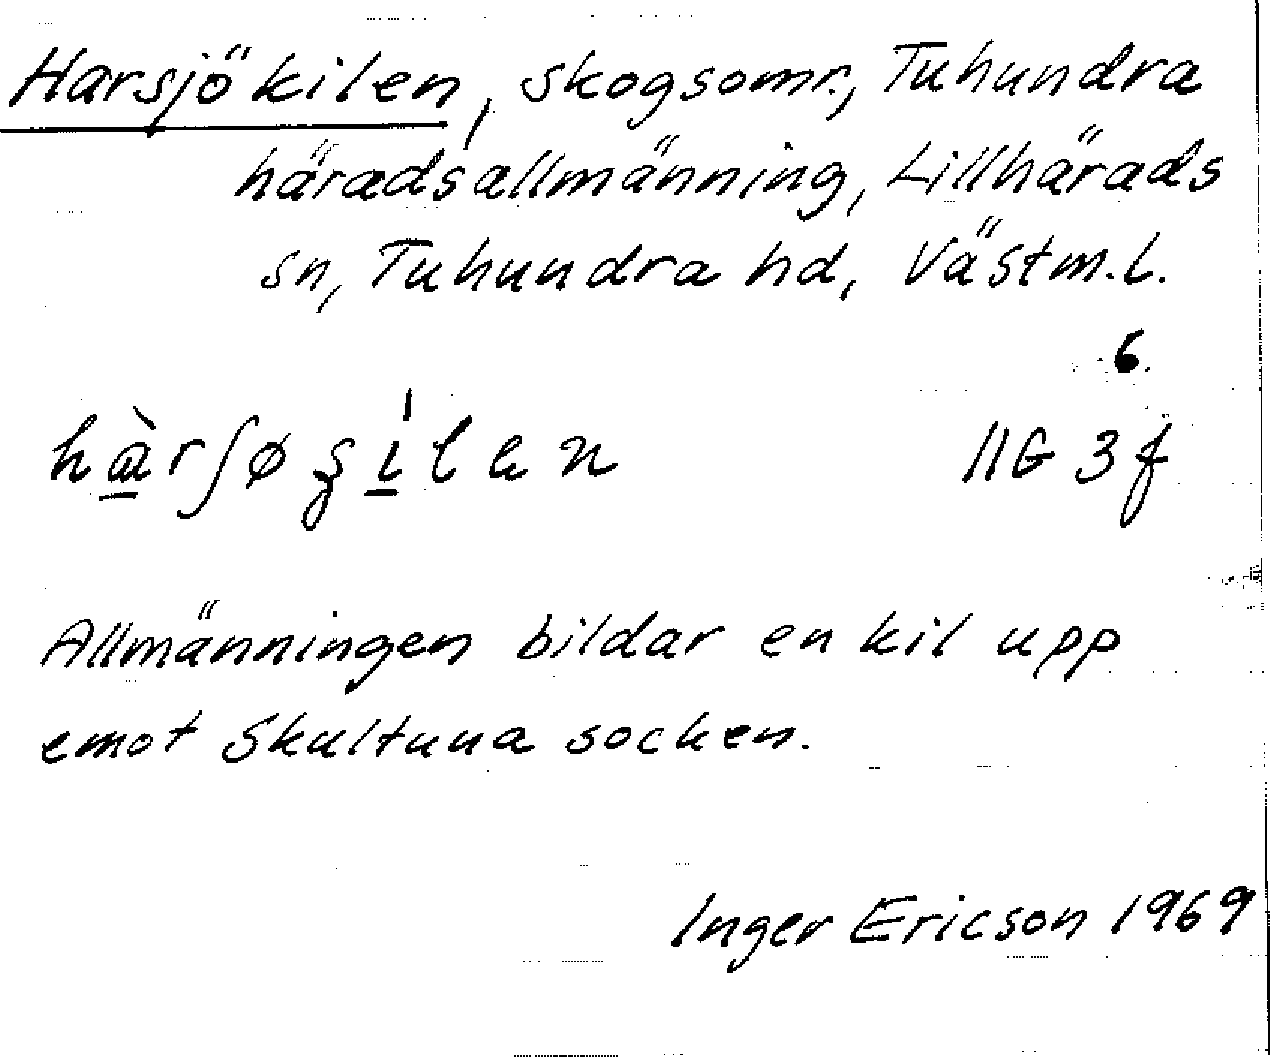 Harsjökilen, skogsomr., Tuhundra
häradsallmänning, Lillhärads
sn, Tuhundra hd, Västm.l.
6.
11G 3f
Allmänningen bildar en kil upp
emot Skultuna socken.
Inger Ericson 1969